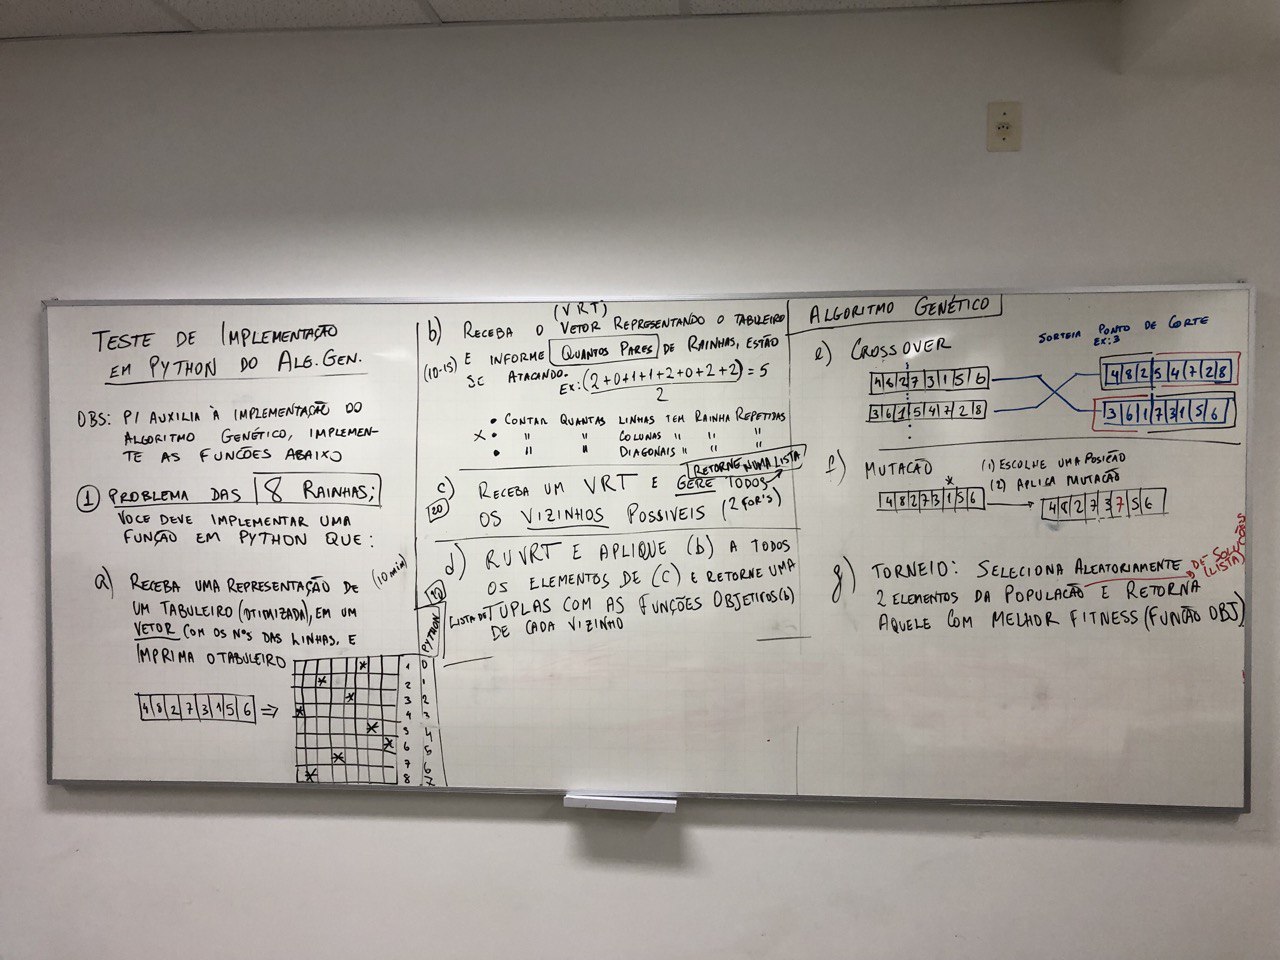 TESTE DE IMPLEMENTAÇÃO
EM PYTHON DO ALG. GEN.
OBS: P/ AUXILIA À IMPLEMENTAÇÃO DO
ALGORITMO GENÉTICO, IMPLEMEN-
TE AS FUNÇÕES ABAIXO
① PROBLEMA DAS 8 RAINHAS;
VOCE DEVE IMPLEMENTAR UMA
FUNÇÃO EM PYTHON QUE:
a) RECEBA UMA REPRESENTAÇÃO DE (10 min)
UM TABULEIRO (OTIMIZADA), EM UM
VETOR COM OS NºS DAS LINHAS, E
IMPRIMA O TABULEIRO
4 8 2 7 3 1 5 6 ⇒
PYTHON
1 0
2 1
3 2
4 3
5 4
6 5
7 6
8 7
(VRT)
b) RECEBA O VETOR REPRESENTANDO O TABULEIRO
(10-15) E INFORME QUANTOS PARES DE RAINHAS, ESTÃO
SE ATACANDO.
EX: (2+0+1+1+2+0+2+2) = 5
2
• CONTAR QUANTAS LINHAS TEM RAINHA REPETIDAS
X • " " COLUNAS " " "
• " " DIAGONAIS " " "
RETORNE NUMA LISTA
c) RECEBA UM VRT E GERE TODOS
20 OS VIZINHOS POSSIVEIS (2 FOR'S)
d) RUVRT E APLIQUE (b) A TODOS
OS ELEMENTOS DE (C) E RETORNE UMA
LISTA DE TUPLAS COM AS FUNÇÕES OBJETIVOS (b)
DE CADA VIZINHO
ALGORITMO GENÉTICO
e) CROSSOVER
SORTEIA PONTO DE CORTE
EX: 3
4 8 2 7 3 1 5 6
3 6 1 5 4 7 2 8
4 8 2 5 4 7 2 8
3 6 1 7 3 1 5 6
f) MUTAÇÃO
(1) ESCOLHE UMA POSIÇÃO
(2) APLICA MUTAÇÃO
*
4 8 2 7 3 1 5 6
4 8 2 7 3 7 5 6
g) TORNEIO: SELECIONA ALEATORIAMENTE
2 ELEMENTOS DA POPULAÇÃO E RETORNA
AQUELE COM MELHOR FITNESS (FUNÇÃO OBJ)
(LISTA) DE SOLUÇÕES